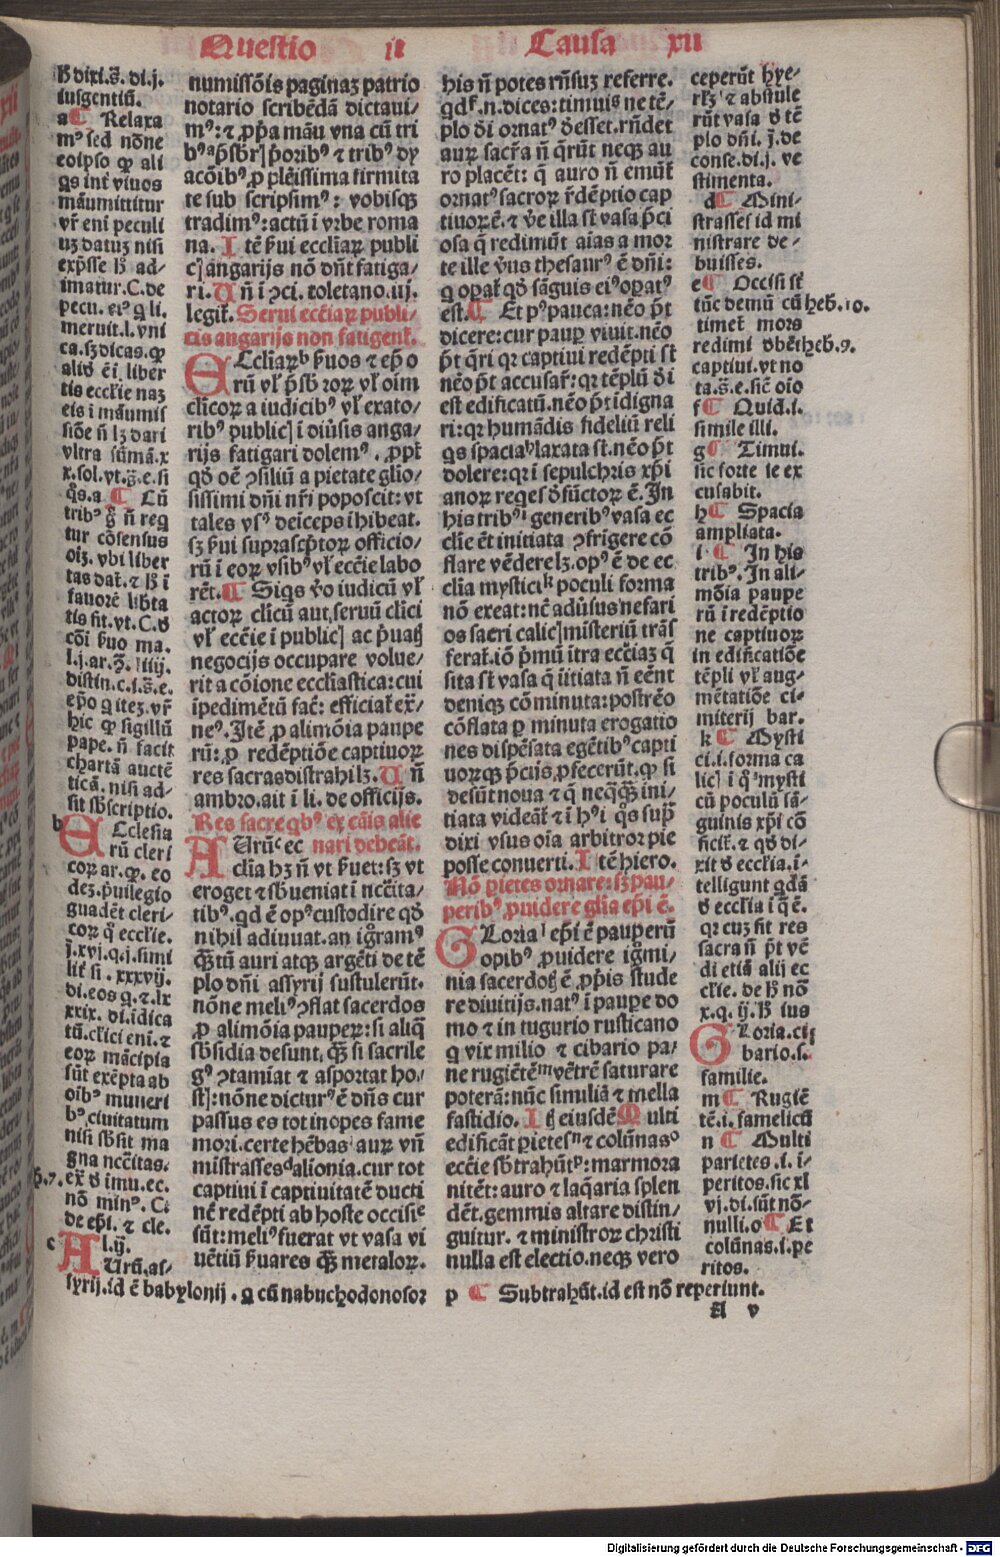 Questio ii Causa xii
ħ dixi.s̄. di.j.
iusgentiū.
a¶ Relaxa
mꝰ sed nōne
eoipso ꝙ ali
qs int̄ viuos
māumittitur
vr̄ eni peculi
uꝫ datuꝫ nisi
exp̄sse ħ ad-
imatur.C.de
pecu. eiꝰ q li.
meruit.l. vni
ca.sꝫ dicas.ꝙ
aliḋ ē i liber
tis ecclie naꝫ
eis i māumis
siōe n̄ lꝫ dari
vltra sūmā.x
x.sol.vt.s̄.e.si
q̄s.a ¶ Cū
tribꝰ g̊ n̄ req
tur cōsensus
oiꝫ. vbi liber
tas dat̄. ⁊ ħ i
fauorē lib̄ta
tis fit. vt. C. ḋ
cōi ẜuo ma.
distin.c.i.s̄.e.
ep̄o q iteꝫ. vr̄
hic ꝙ sigillū
pape. n̄ facit
chartā auctē
ticā. nisi ad-
sit sb̄scriptio.
b Ecclesia
rū cleri
coꝝ ar. ꝙ. eo
deꝫ.p̄uilegio
guadēt cleri-
coꝝ q̄ ecclie.
j.xvj.q.j.simi
lit̄ si . xxxvij.
di.eos q. ⁊. lx
xxix. di.idica
tū.clici eni.⁊
eoꝝ mācipia
sūt exēpta ab
oibꝰ muneri
bꝰ ciuitatum
nisi sb̄sit ma
gna ncc̄itas.
ꝑ.7. ex ḋ imu.ec.
nō minꝰ. Ci
de ep̄i. ⁊ cle.
l.ij.
c Aurū.as/
syrij.id ē babylonij . q cū nabuchodonosor
numissōis paginaꝫ patrio
notario scribēdā dictaui/
mꝰ: ⁊ ꝓp̄a māu vna cū tri
bꝰ p̄sbr̄ꝭ p̄oribꝰ ⁊ tribꝰ dy
acōibꝰ ꝓ plēissima firmita
te sub scripsimꝰ: vobisqꝫ
tradimꝰ: actū i vrbe roma
na. Itē ẜui ecclīaꝝ publi
cꝭ angarijs nō dn̄t fatiga/
ri. Un̄ i ɔci. toletano.iij.
legit̄. Serui ecc̄iaꝝ publi/
cis angarijs non fatigent̄.
Ecclīaꝝ ẜuos ⁊ ep̄o
rū vł p̄sb̄ roꝝ vł oim
clīcoꝝ a iudicibꝰ vł exato/
ribꝰ publicꝭ i diūsis anga/
rijs fatigari dolemꝰ . ꝓpt̄
qḋ oē ɔsiliū a pietate glio/
sissimi dn̄i nr̄i poposcit: vt
tales vsꝰ deiceps ihibeat.
sꝫ ẜui suprascp̄toꝝ officio/
rū i eoꝝ vsibꝰ vł ecc̄ie labo
rēt. ¶ Siqs v̊o iudicū vł
actoꝝ clīcū aut seruū clīci
vł ecc̄ie i publicꝭ ac p̄uatꝭ
negocijs occupare volue/
rit a cōione ecclīastica: cui
ipedimētū fac̄: efficiat̄ ex/
neꝰ. Itē ꝓ alimōia paupe
rū: ꝓ redēptiōe captiuoꝝ
res sacras distrahi lꝫ. Un̄
ambro.ait i li. de officijs.
Res sacre qbꝰ ex cāis alie
nari debeāt.
Aurū ec
clīa hꝫ n̄ vt ẜuet: sꝫ vt
eroget ⁊ sb̄ueniat i ncc̄ita/
tibꝰ. qd ē opꝰ custodire qḋ
nihil adiuuat. an ig̊ramꝰ
q̄ꝫtū auri atqꝫ argēti de tē
plo dn̄i assyrij sustulerūt.
nōne meliꝰ ɔflat sacerdos
ꝓ alimōia paupeꝝ: si aliq̄
sb̄sidia desunt, q̄ꝫ si sacrile
gꝰ ɔtamiat ⁊ asportat ho/
stꝭ: nōne dicturꝰ ē dn̄s cur
passus es tot inopes fame
mori. certe hēbas auꝝ vn̄
mistrasses alionia. cur tot
captiui i captiuitatē ducti
nē redēpti ab hoste occisi
sūt: meliꝰ fuerat vt vasa vi
uētiū ẜuares q̄ꝫ metaloꝝ.
his n̄ potes rn̄suꝫ referre.
qd̄.n. dices: timui ne tē/
plo ḋi ornatꝰ ḋesset. rn̄det
auꝝ sacr̄a n̄ q̄rūt neqꝫ au
ro placēt: q̄ auro n̄ emūt̄
ornatꝰ sacroꝝ r̄dēptio cap
tiuoꝝ ē. ⁊ v̊e illa st̄ vasa p̄ci
osa q̄ redimūt aias a mor
te ille v̊us thesaurꝰ ē dn̄i:
q opat̄ qḋ sāguis eiꝰ opatꝰ
est. ¶ Et pꝰ pauca: nēo p̄t
dicere: cur paup̄ viuit. nēo
p̄t q̄ri qꝛ captiui redēpti st̄
nēo p̄t accusar̄: qꝛ tēplū ḋi
est edificatū. nēo p̄t idigna
ri: qꝛ humādis fideliū reli
qs spacia laxata st̄. nēo p̄t
dolere: qꝛ i sepulchris xp̄i
anoꝝ reqes ḋfūctoꝝ ē. In
his tribꝰ generibꝰ vasa ec
clīe ēt initiata ɔfrigere cō
flare vēdere lꝫ. opꝰ ē de ec
clīa mystici poculi forma
nō exeat: nē ad v̊sus nefari
os sacri calicꝭ misteriū trās
ferat̄. iō p̄mū itra ecc̄iaꝫ q̄
sita st̄ vasa q̄ iitiata n̄ eēnt
deniqꝫ cōminuta: postrēo
cōflata ꝑ minuta erogatio
nes dispēsata egētibꝰ capti
uoꝝqꝫ p̄cijs ꝓfecerūt. ꝙ si
desūt noua ⁊ q̄ neq̄q̄ꝫ ini/
tiata videāt̄ ⁊ i hꝰi q̄s sup̄
dixi vsus oia arbitroꝛ pie
posse conuerti. Itē hiero.
Nō pietes ornare: sꝫ pau/
peribꝰ ꝓuidere glia ep̄i ē.
Gloria ep̄i ē pauperū
opibꝰ ꝓuidere igmi/
nia sacerdotꝭ ē ꝓp̄is stude
re diuitijs. natꝰ i paupe do
mo ⁊ in tugurio rusticano
q vix milio ⁊ cibario pa/
ne rugiētē vētrē saturare
poterā: nūc similiā ⁊ mella
fastidio. Iꝫ eiusdē Multi
edificāt pietes ⁊ colūnas
ecc̄ie sb̄trahūt: marmora
nitēt: auro ⁊ laq̄aria splen
dēt. gemmis altare distin/
guitur. ⁊ ministroꝝ christi
nulla est electio. neqꝫ vero
ceperūt hye/
rłꝫ ⁊ abstule
rūt vasa ḋ tē
plo dn̄i. j. de
conse.di.j. ve
stimenta.
d¶ Mini-
strasses id mi
nistrare de-
buisses.
e¶ Occisi st̄
tūc demū cū heb̄.10.
timet̄ mors
redimi ḋbēt heb̄.9.
captiui. vt no
ta.s̄.e.sic̄ oio
f¶ Quid.i.
simile illi.
g¶ Timui.
sic forte te ex
cusabit.
h¶ Spacia
ampliata.
i ¶ In his
tribꝰ. In ali-
mōia paupe
rū i redēptio
ne captiuoꝝ
in edificatiōe
tēpli vł aug-
mētatiōe ci-
miterij bar.
k¶ Mysti
ci.i. forma ca
licꝭ i q̄ mysti
cū poculū sā-
guinis xp̄i cō
ficit̄. ⁊ qḋ di-
xit ḋ ecclīa.i-
telligunt qdā
ḋ ecclīa i q̄ ē.
qꝛ cuꝫ sit res
sacra n̄ p̄t vē
di etiā alij ec
clīe. de ħ nō
x. q. ij. ħ ius
Gloria.ci
bario.s.
familie.
m¶ Rugiē
tē.i. famelicū
n ¶ Multi
parietes .i. i-
peritos. sic xl
vj.di.sūt nō-
nulli. o¶ Et
colūnas.i.pe
ritos.
p ¶ Subtrahūt.id est nō reperiunt.
A v
Digitalisierung gefördert durch die Deutsche Forschungsgemeinschaft - DFG